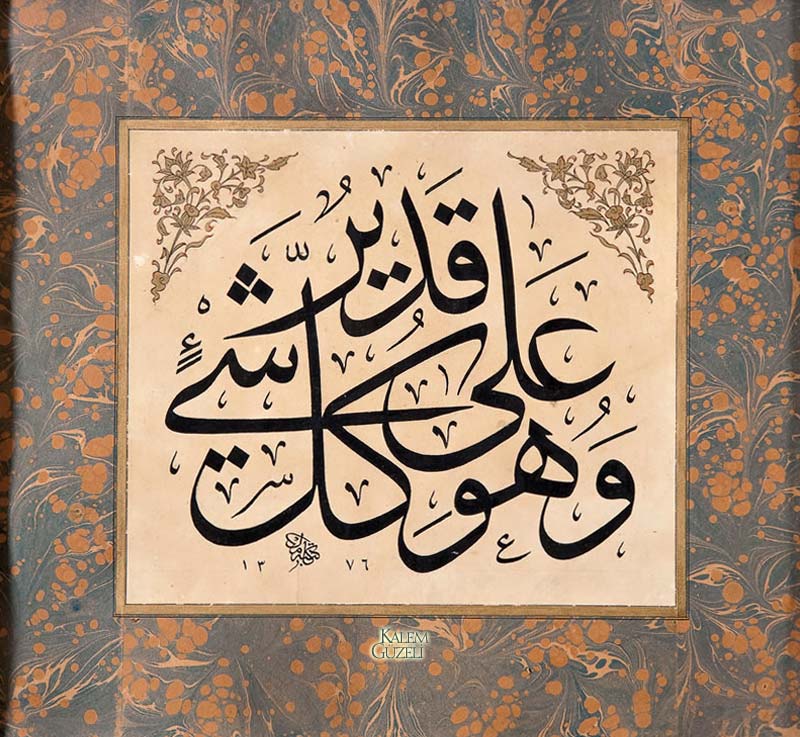 وَهُوَ عَلٰى كُلِّ شَيْءٍ قَدِيرٌ
١٣٧٦
KALEM
GÜZELİ